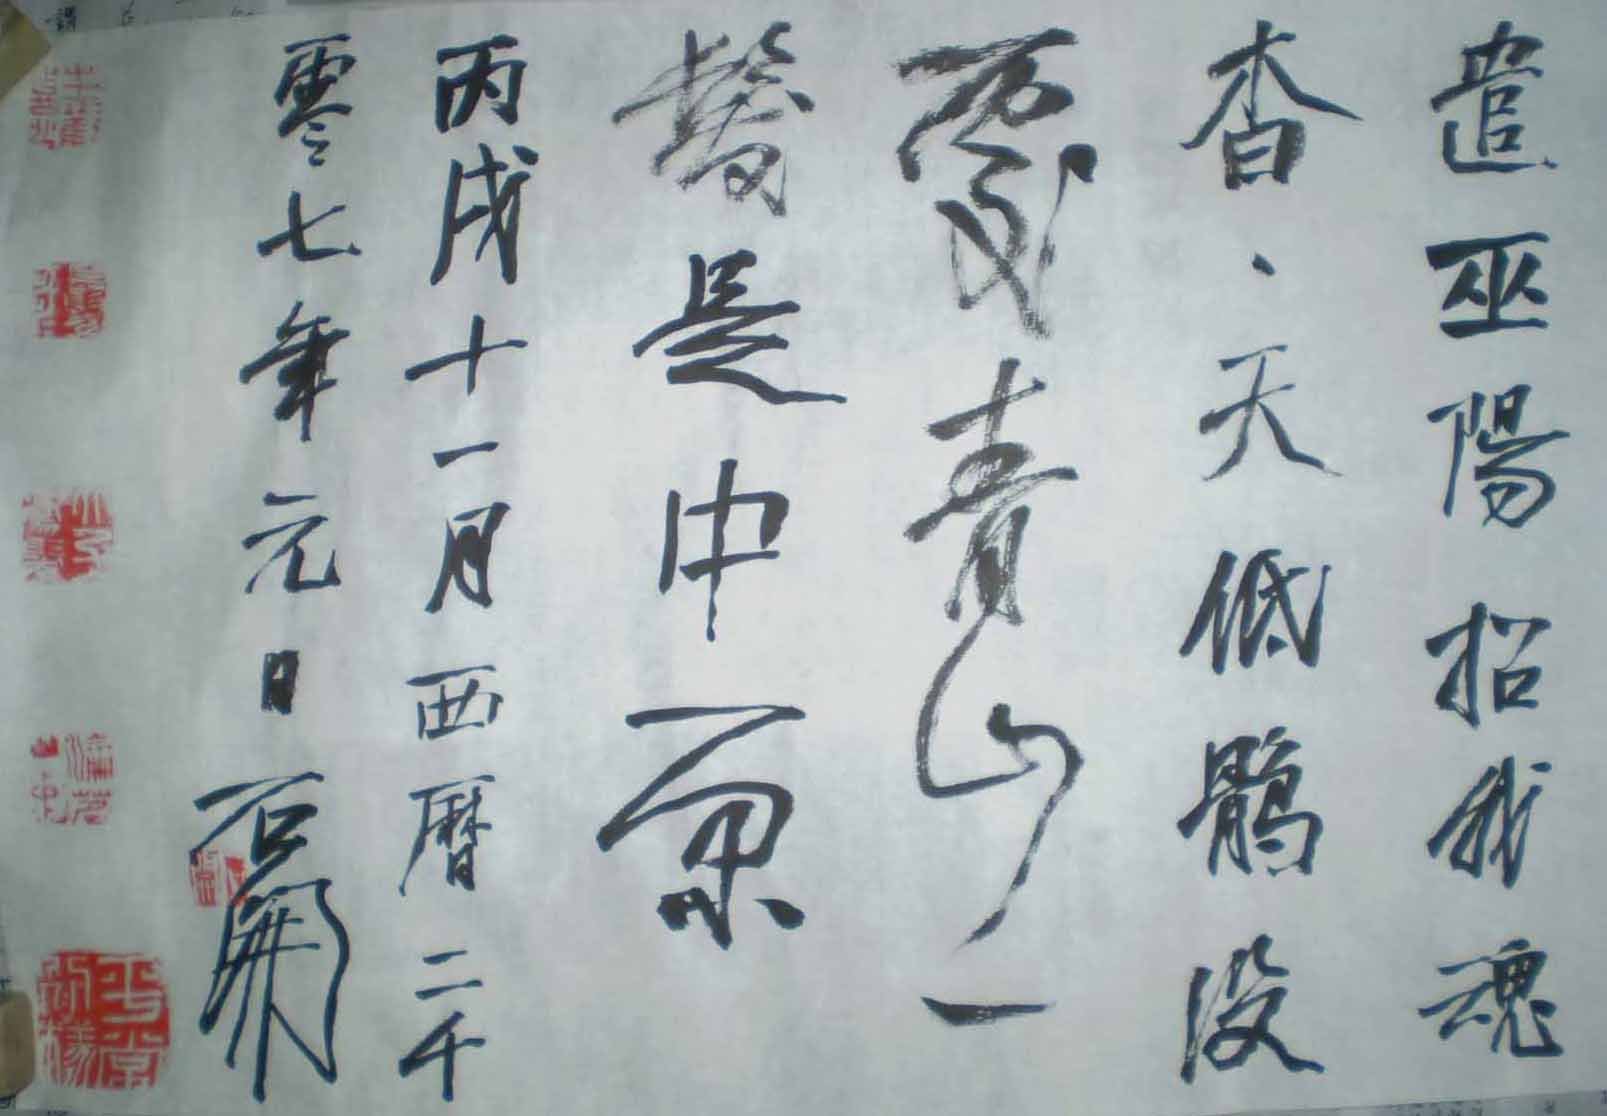 遣巫陽招我魂
杳、天低鶻没
處青山一
髮是中原
丙戌十一月西曆二千
零七年元日石開